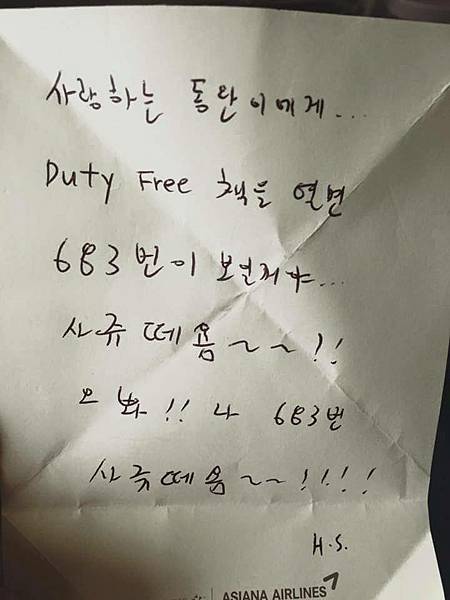 사랑하는 동완이에게...
Duty Free 책을 열면
683번이 보일꺼야...
사쥬떼욤~~!!
오빠!! 나 683번
사쥬떼욤~~!!!!
H.S.
ASIANA AIRLINES